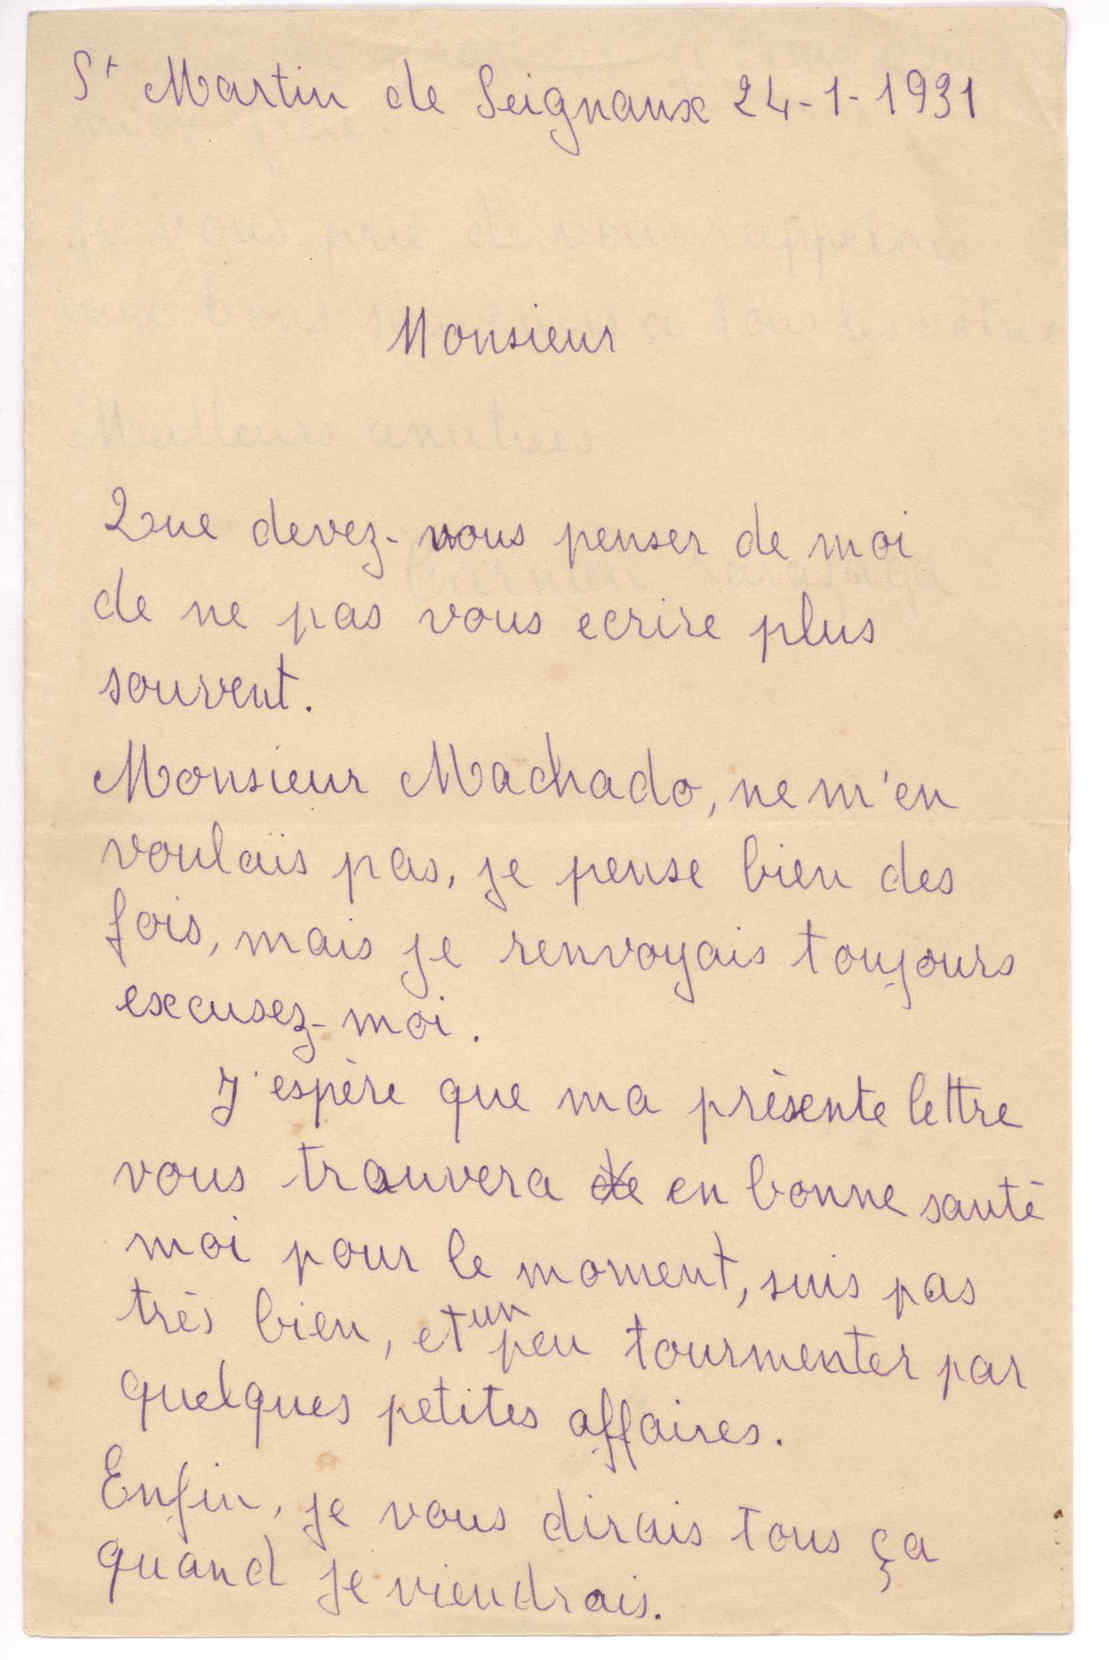 St Martin de Seignanx 24-1-1931
Monsieur
Que devez-vous penser de moi
de ne pas vous ecrire plus
souvent.
Monsieur Machado, ne m'en
voulais pas, je pense bien des
fois, mais je renvoyais toujours
excusez-moi.
J'espère que ma présente lettre
vous trouvera de en bonne santé
moi pour le moment, suis pas
très bien, et un peu tourmenter par
quelques petites affaires.
Enfin, je vous dirais tous ça
quand je viendrais.